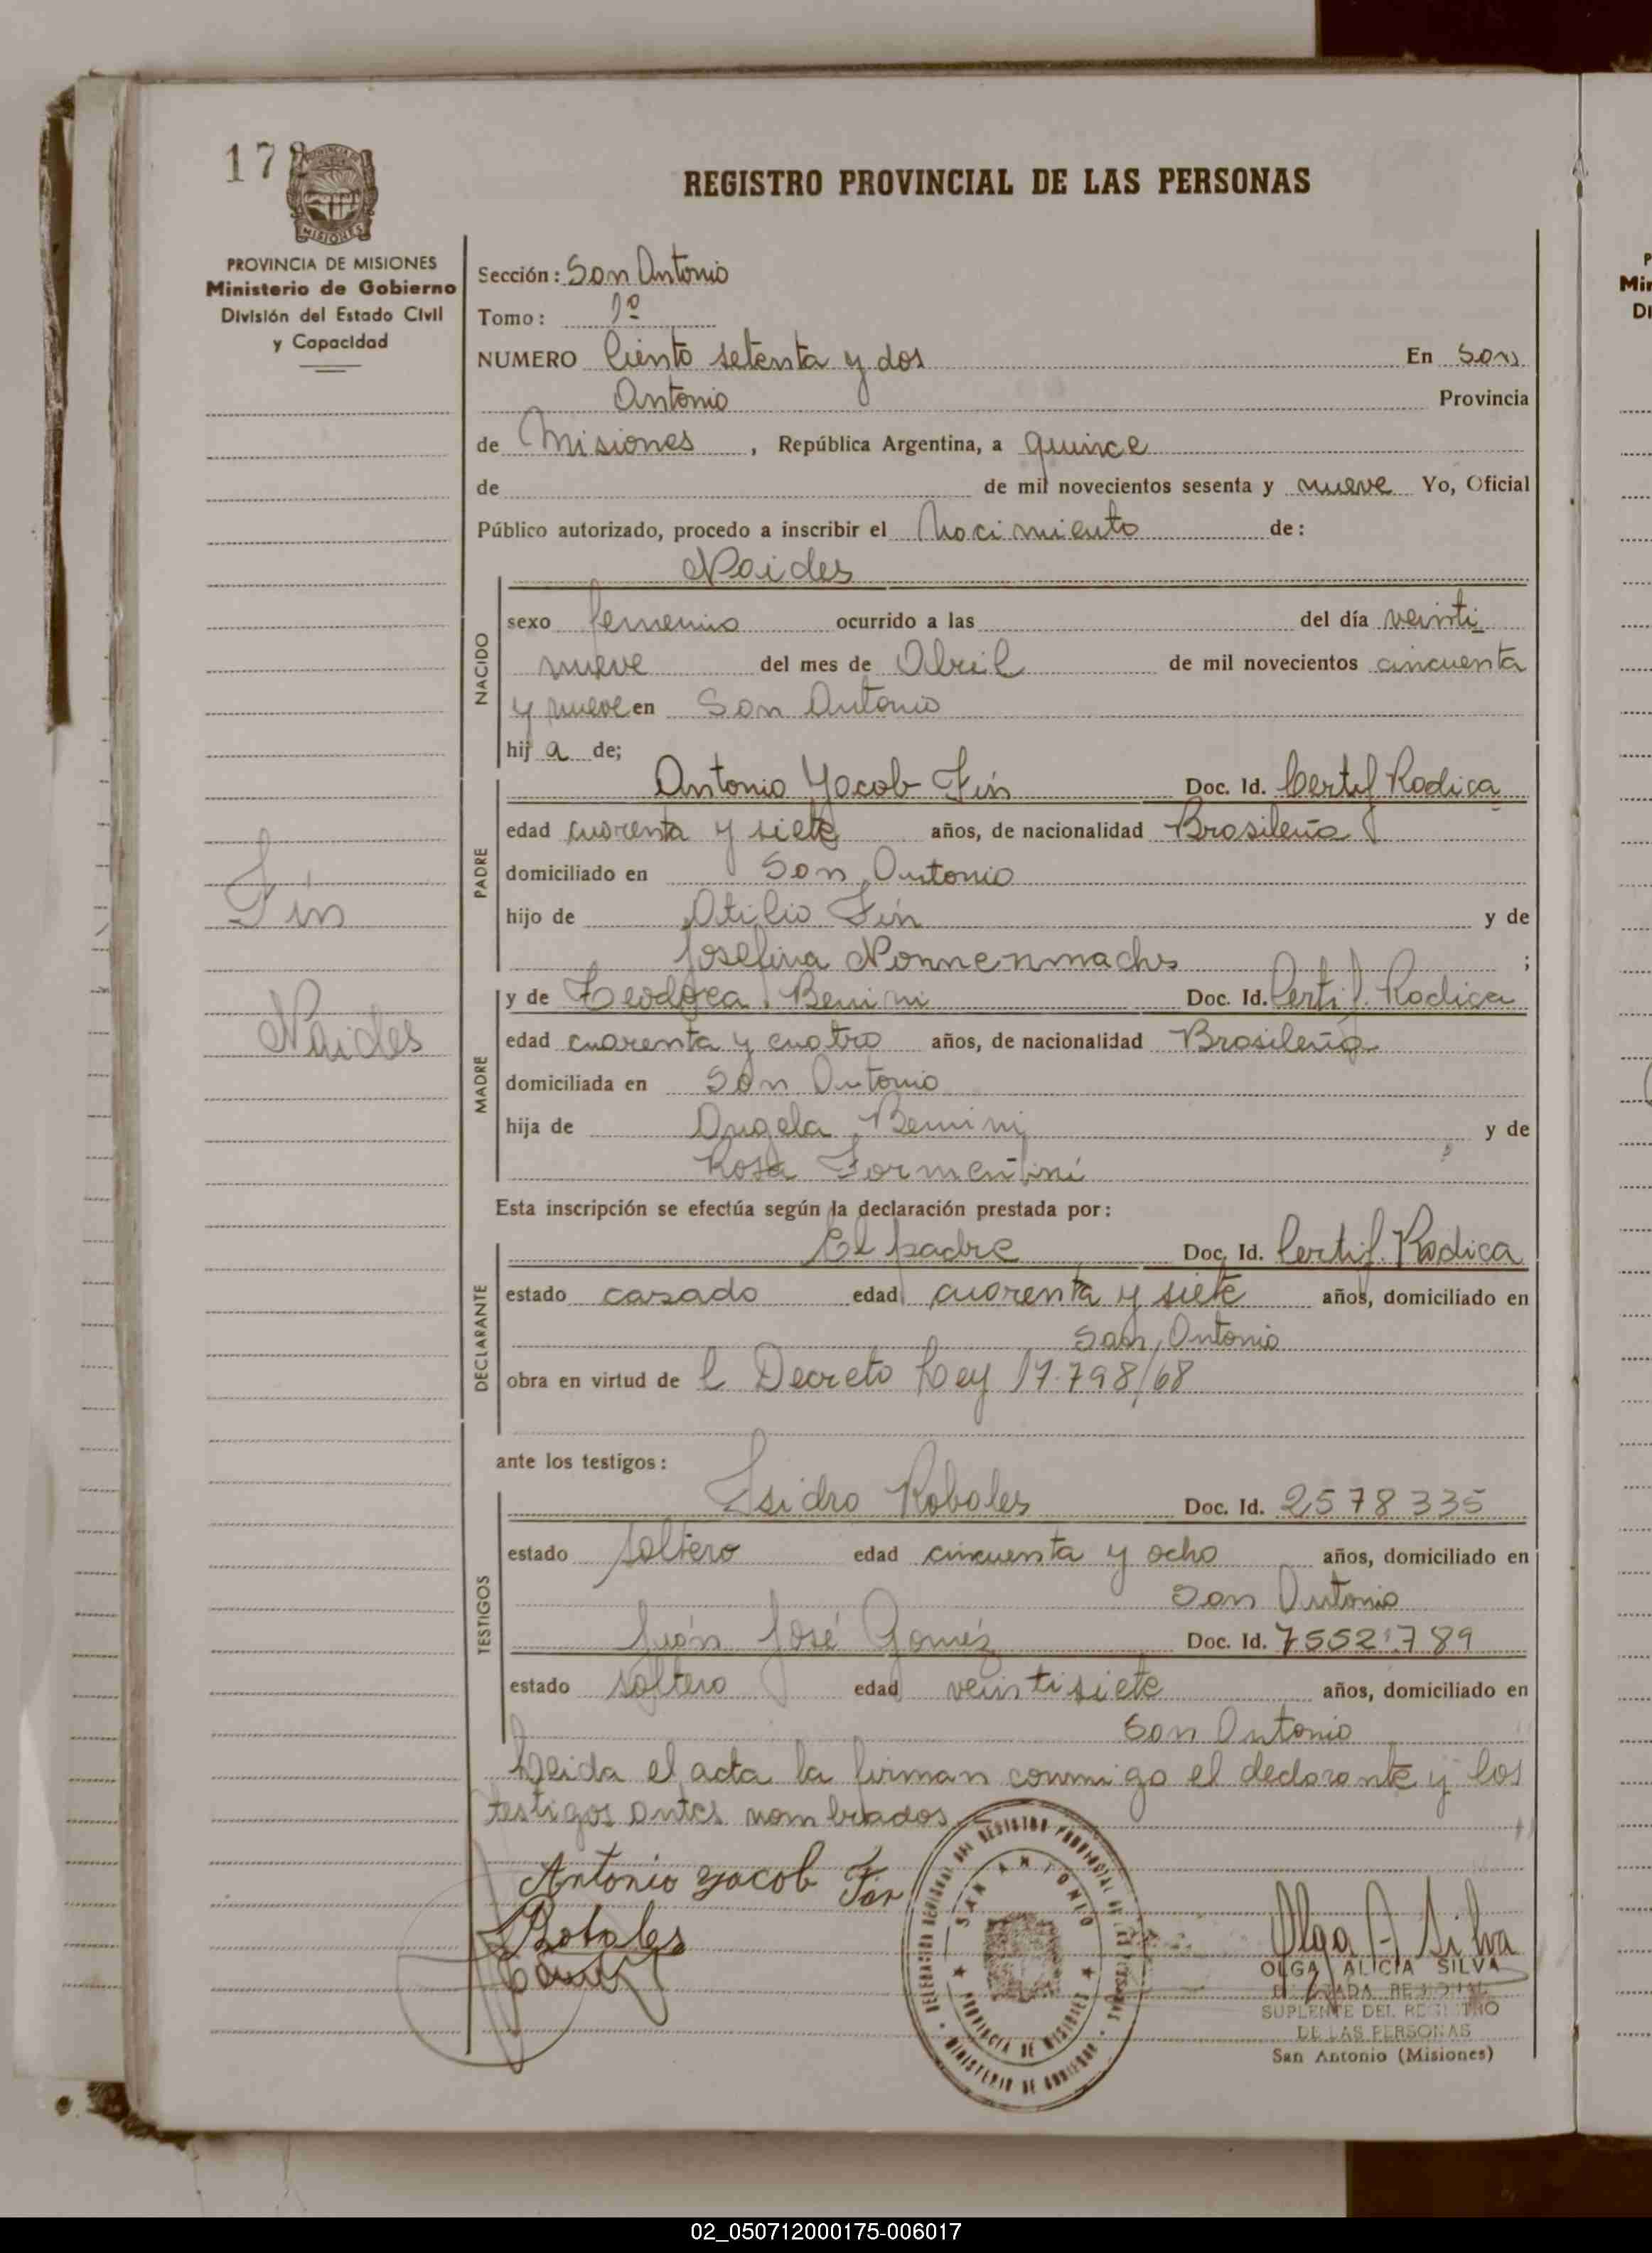 172
REGISTRO PROVINCIAL DE LAS PERSONAS
PROVINCIA DE MISIONES
Ministerio de Gobierno
División del Estado Civil
y Capacidad
Sección: San Antonio
Tomo: 1º
NUMERO Ciento setenta y dos En San
Antonio Provincia
de Misiones, República Argentina, a quince
de de mil novecientos sesenta y nueve Yo, Oficial
Público autorizado, procedo a inscribir el Nacimiento de:
Naides
NACIDO
sexo femenino ocurrido a las del día veinti
nueve del mes de Abril de mil novecientos cincuenta
y nueve en San Antonio
hij a de;
PADRE
Antonio Yacob Fin Doc. Id. Certif Radica
edad cuarenta y siete años, de nacionalidad Brasileña
domiciliado en San Antonio
hijo de Otilio Fin y de
Josefina ;
MADRE
y de Teodora Benini Doc. Id. Certif. Radica
edad cuarenta y cuatro años, de nacionalidad Brasileña
domiciliada en San Antonio
hija de Angela Benini y de
Rosa Formentini
Fin
Naides
Esta inscripción se efectúa según la declaración prestada por:
DECLARANTE
El padre Doc. Id. Certif. Radica
estado casado edad cuarenta y siete años, domiciliado en
San Antonio
obra en virtud de l Decreto Ley 17.798/68
ante los testigos:
TESTIGOS
Isidro Robales Doc. Id. 2578335
estado soltero edad cincuenta y ocho años, domiciliado en
San Antonio
Juán José Goméz Doc. Id. 7552.789
estado soltero edad veintisiete años, domiciliado en
San Antonio
Leida el acta la firman conmigo el declarante y los
testigos antes nombrados
Antonio yacob Fin
Robales
DELEGACION SECCIONAL DEL REGISTRO PROVINCIAL DE LAS PERSONAS
SAN ANTONIO
PROVINCIA DE MISIONES
MINISTERIO DE GOBIERNO
Olga A Silva
OLGA ALICIA SILVA
SUPLENTE DEL REGISTRO
DE LAS PERSONAS
San Antonio (Misiones)
02_050712000175-006017